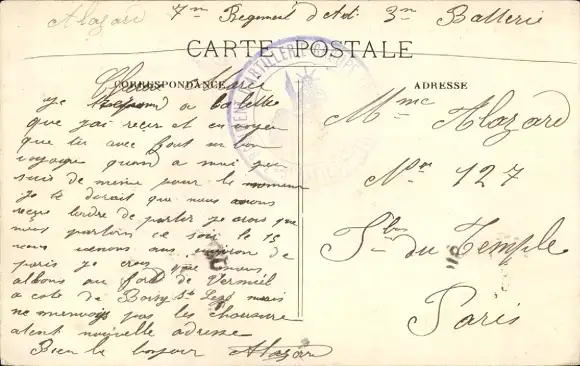 Alazard 7me Regiment d'Art. 3me Batterie
CARTE POSTALE
CORRESPONDANCE
ADRESSE
Chere Marie
je repond a ta lettre
que j'ai recu et en voyen
que tu avee fait un bon
voyage quand a moi je
suis de meme pour le moment
je te dirait que nous avons
recus lordre de partir je crois que
nous partons ce soir le 13
nous venons aus environ de
paris je crois que nous
allons au fort de Verneil
a cote de Boissy St Lege mais
ne menvoy pas les chausure
atent nouvelle adresse
Bien le bonjour Alazard
Mme Alazard
No 127
du Temple
Paris